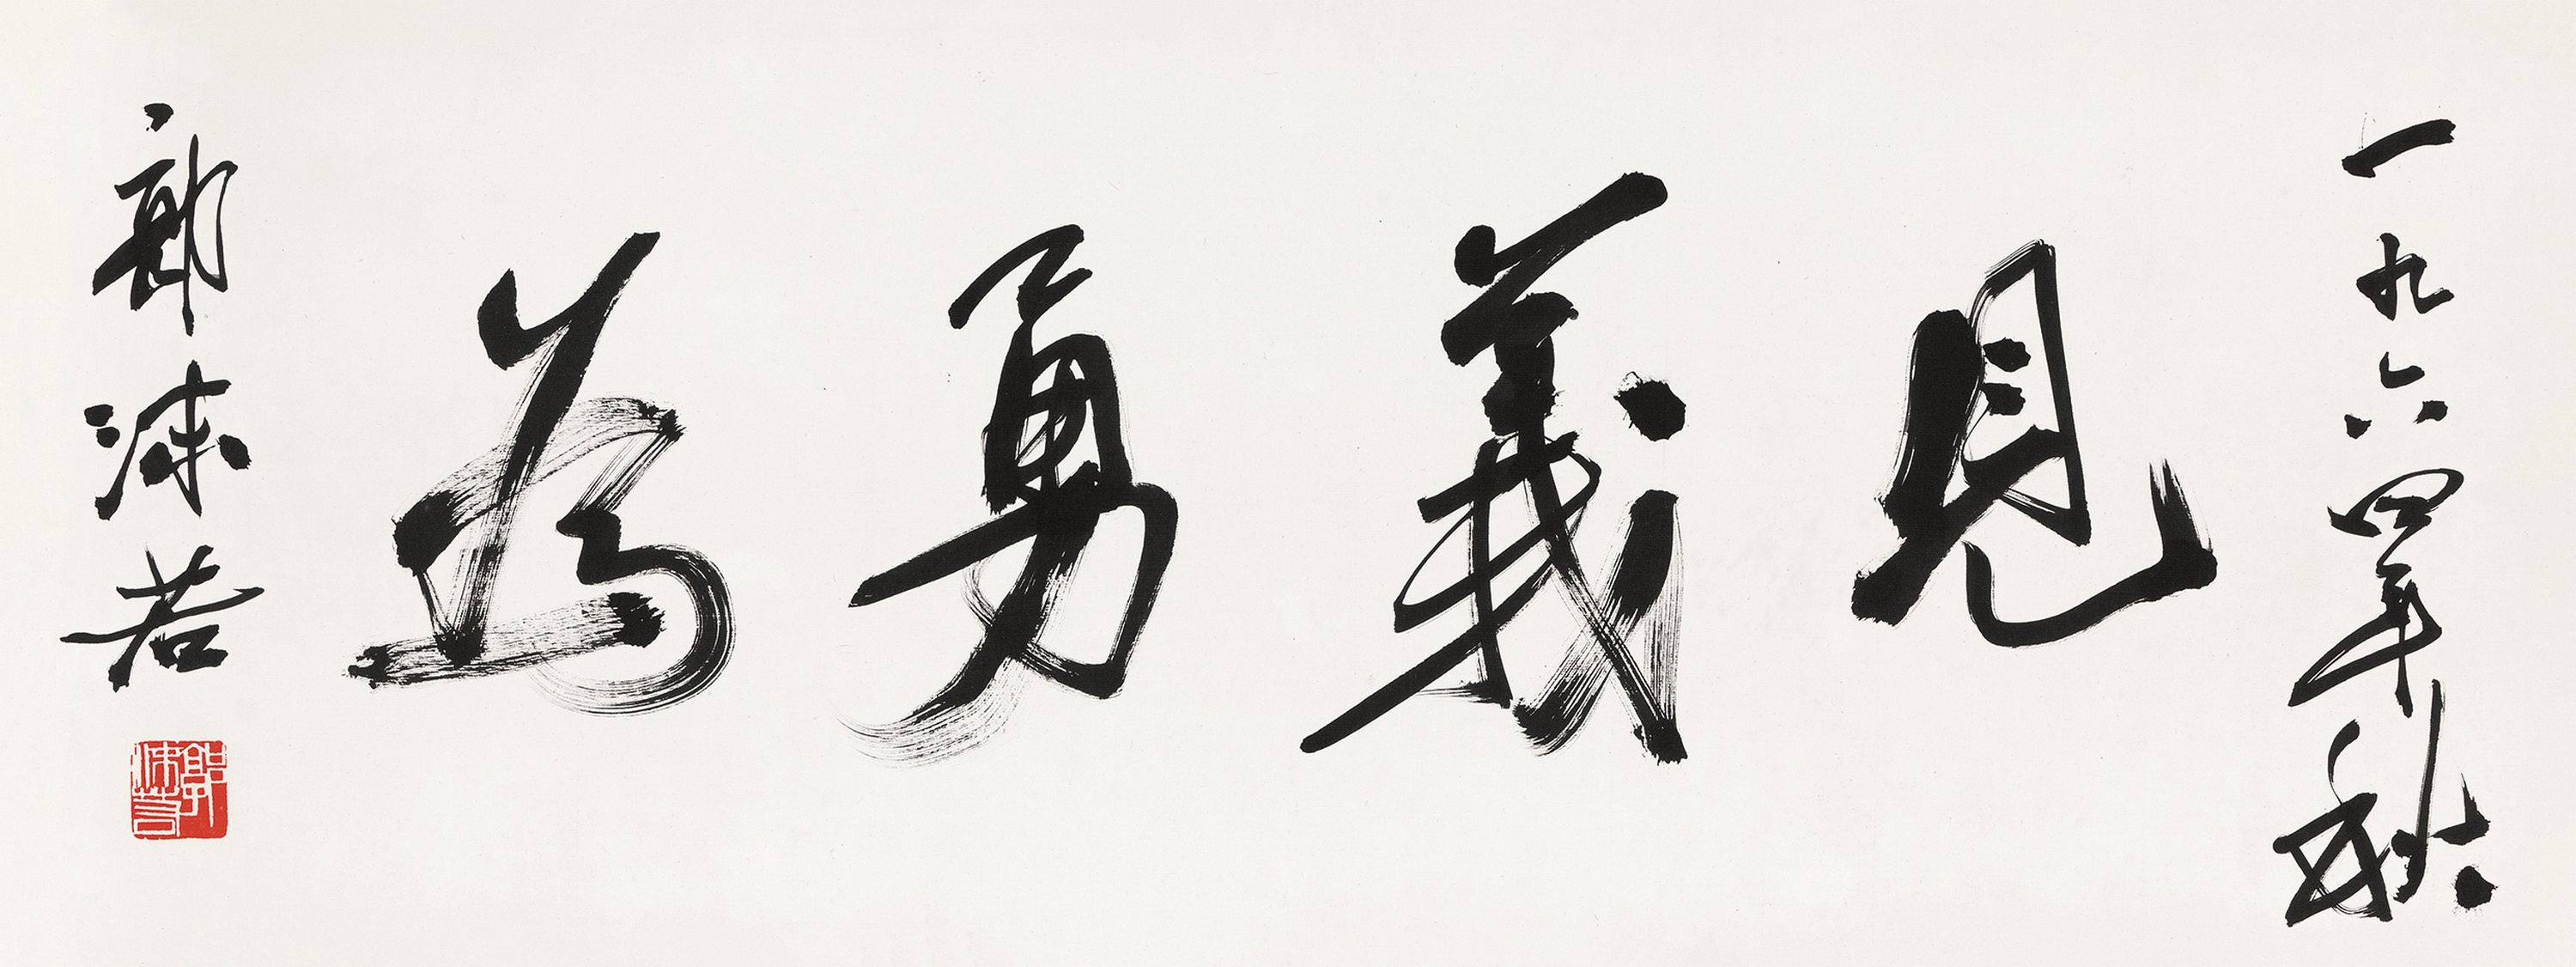 一九六四年秋
見義勇為
郭沫若
郭沫若